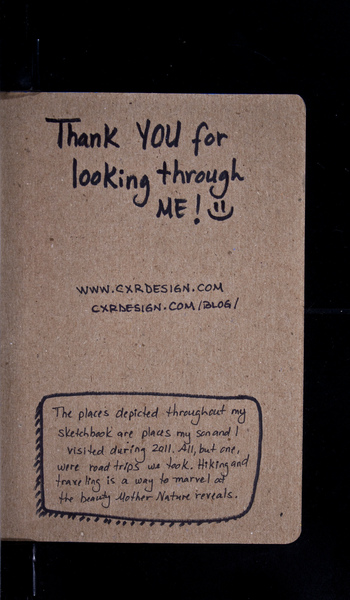 Thank YOU for
looking through
ME!
WWW.CXRDESIGN.COM
CXRDESIGN.COM/BLOG/
The places depicted throughout my
sketchbook are places my son and I
visited during 2011. All, but one,
were road trips we took. Hiking and
traveling is a way to marvel at
the beauty Mother Nature reveals.